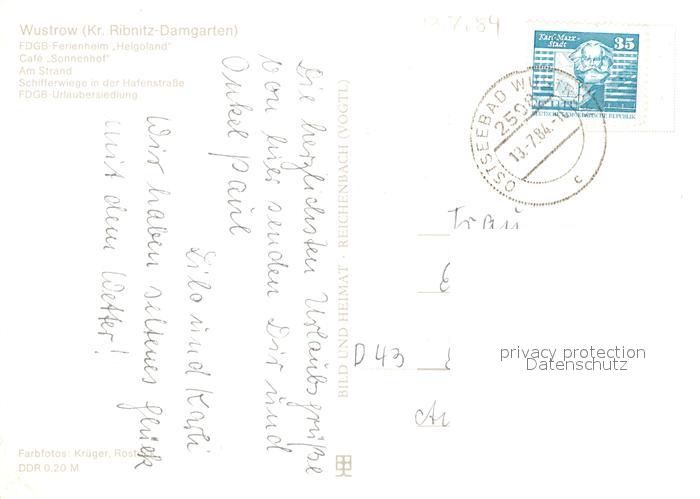 Wustrow (Kr. Ribnitz-Damgarten)
FDGB-Ferienheim „Helgoland"
Café „Sonnenhof"
Am Strand
Schifferwiege in der Hafenstraße
FDGB-Urlaubersiedlung
Die herzlichsten Urlaubsgrüße
von hier senden Dir und
Onkel Paul
Lilo und Karli
Wir haben seltenes Glück
mit dem Wetter!
BILD UND HEIMAT · REICHENBACH (VOGTL)
Farbfotos: Krüger, Rost
DDR 0,20 M
.7.84
Karl-Marx-
Stadt
35
DEUTSCHE DEMOKRATISCHE REPUBLIK
OSTSEEBAD WU
259
13.-7.84.-1
c
Frau
D 43
privacy protection
Datenschutz